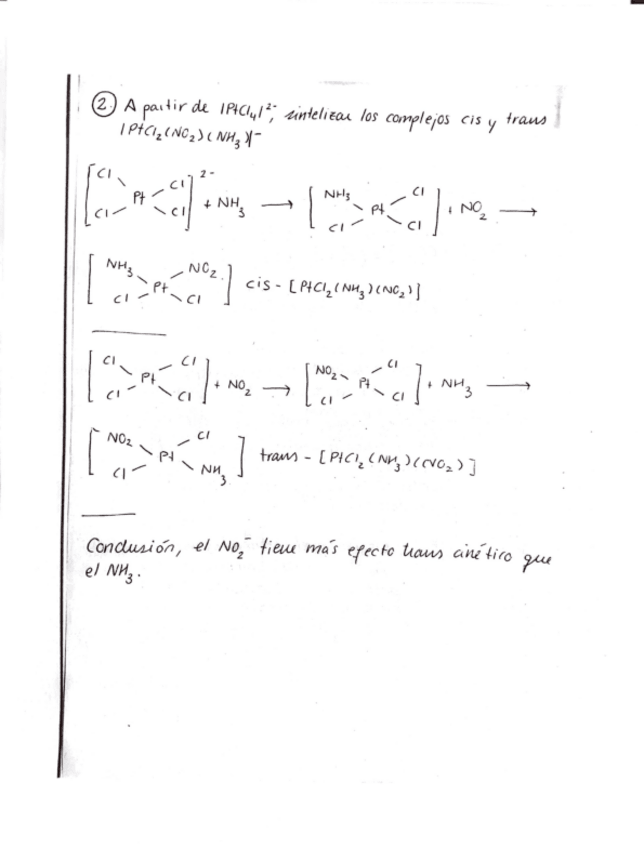 ② A partir de |PtCl₄|²⁻, sintelizar los complejos cis y trans
|PtCl₂(NO₂)(NH₃)|⁻
[Cl Cl Pt Cl Cl]²⁻ + NH₃ → [NH₃ Cl Pt Cl Cl] + NO₂ →
[NH₃ NO₂ Pt Cl Cl] cis - [PtCl₂(NH₃)(NO₂)]
[Cl Cl Pt Cl Cl] + NO₂ → [NO₂ Cl Pt Cl Cl] + NH₃ →
[NO₂ Cl Pt Cl NH₃] trans - [PtCl₂(NH₃)(NO₂)]
Conclusión, el NO₂⁻ tiene más efecto trans cinético que
el NH₃.